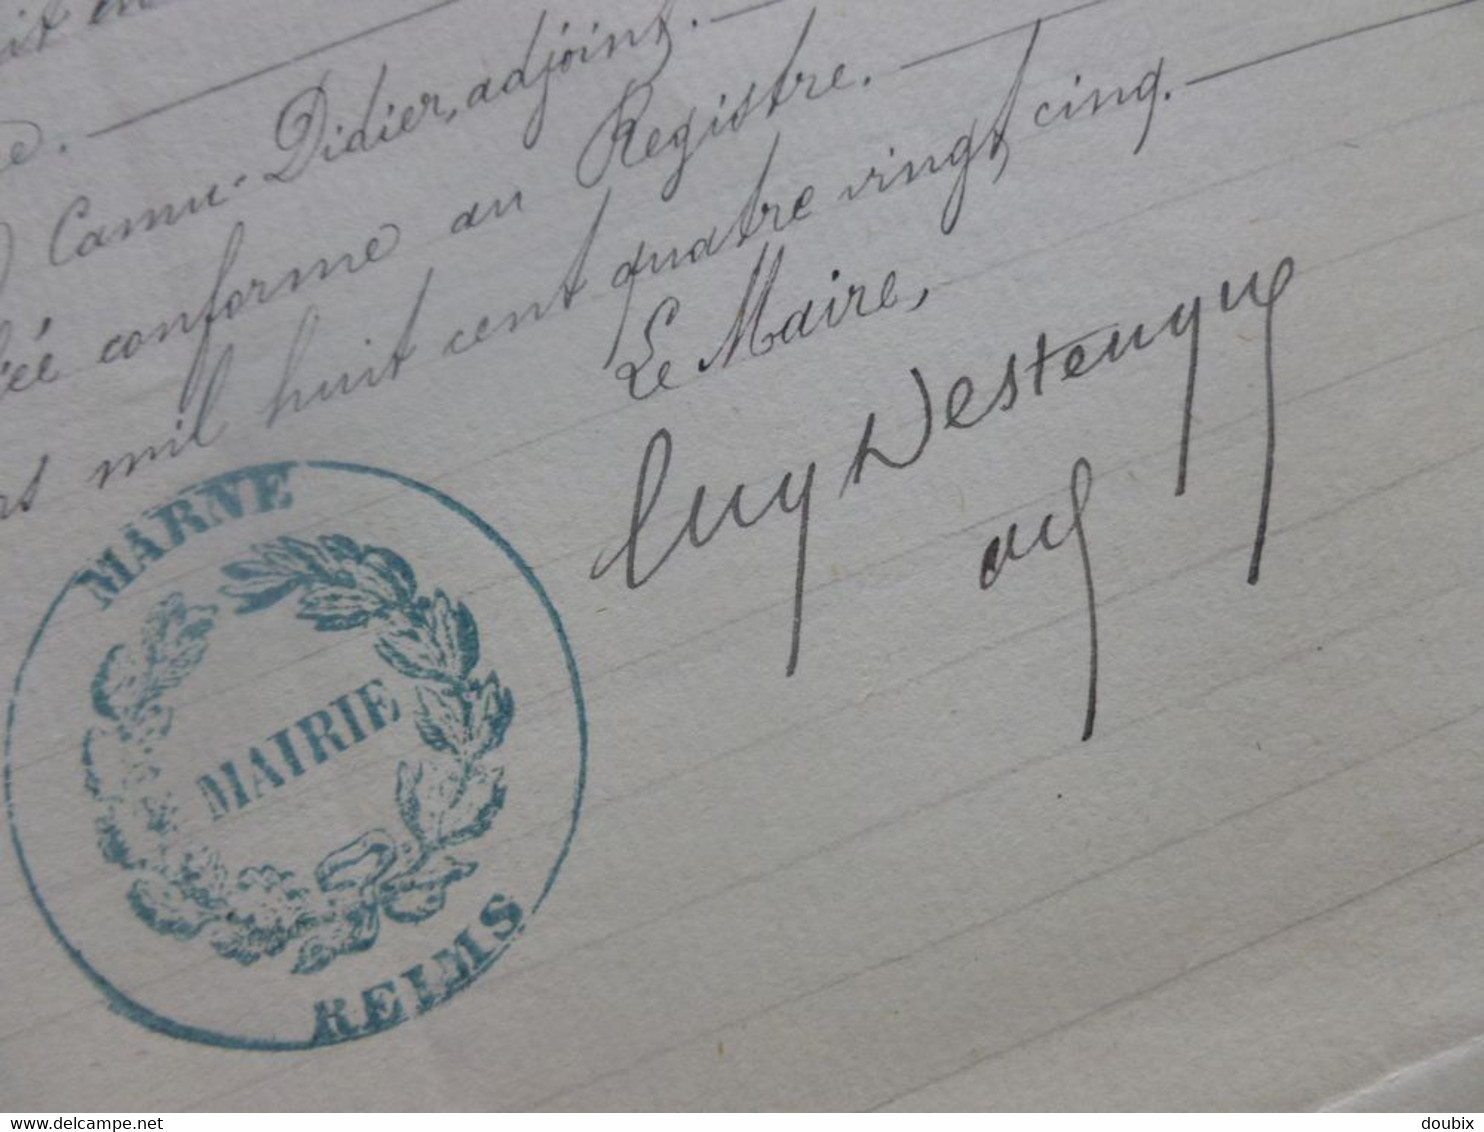 Camu-Didier, adjoint.
conforme au Registre.
mil huit cent quatre vingt cinq.
Le Maire,
MARNE
MAIRIE
REIMS
delcampe.net
doubix